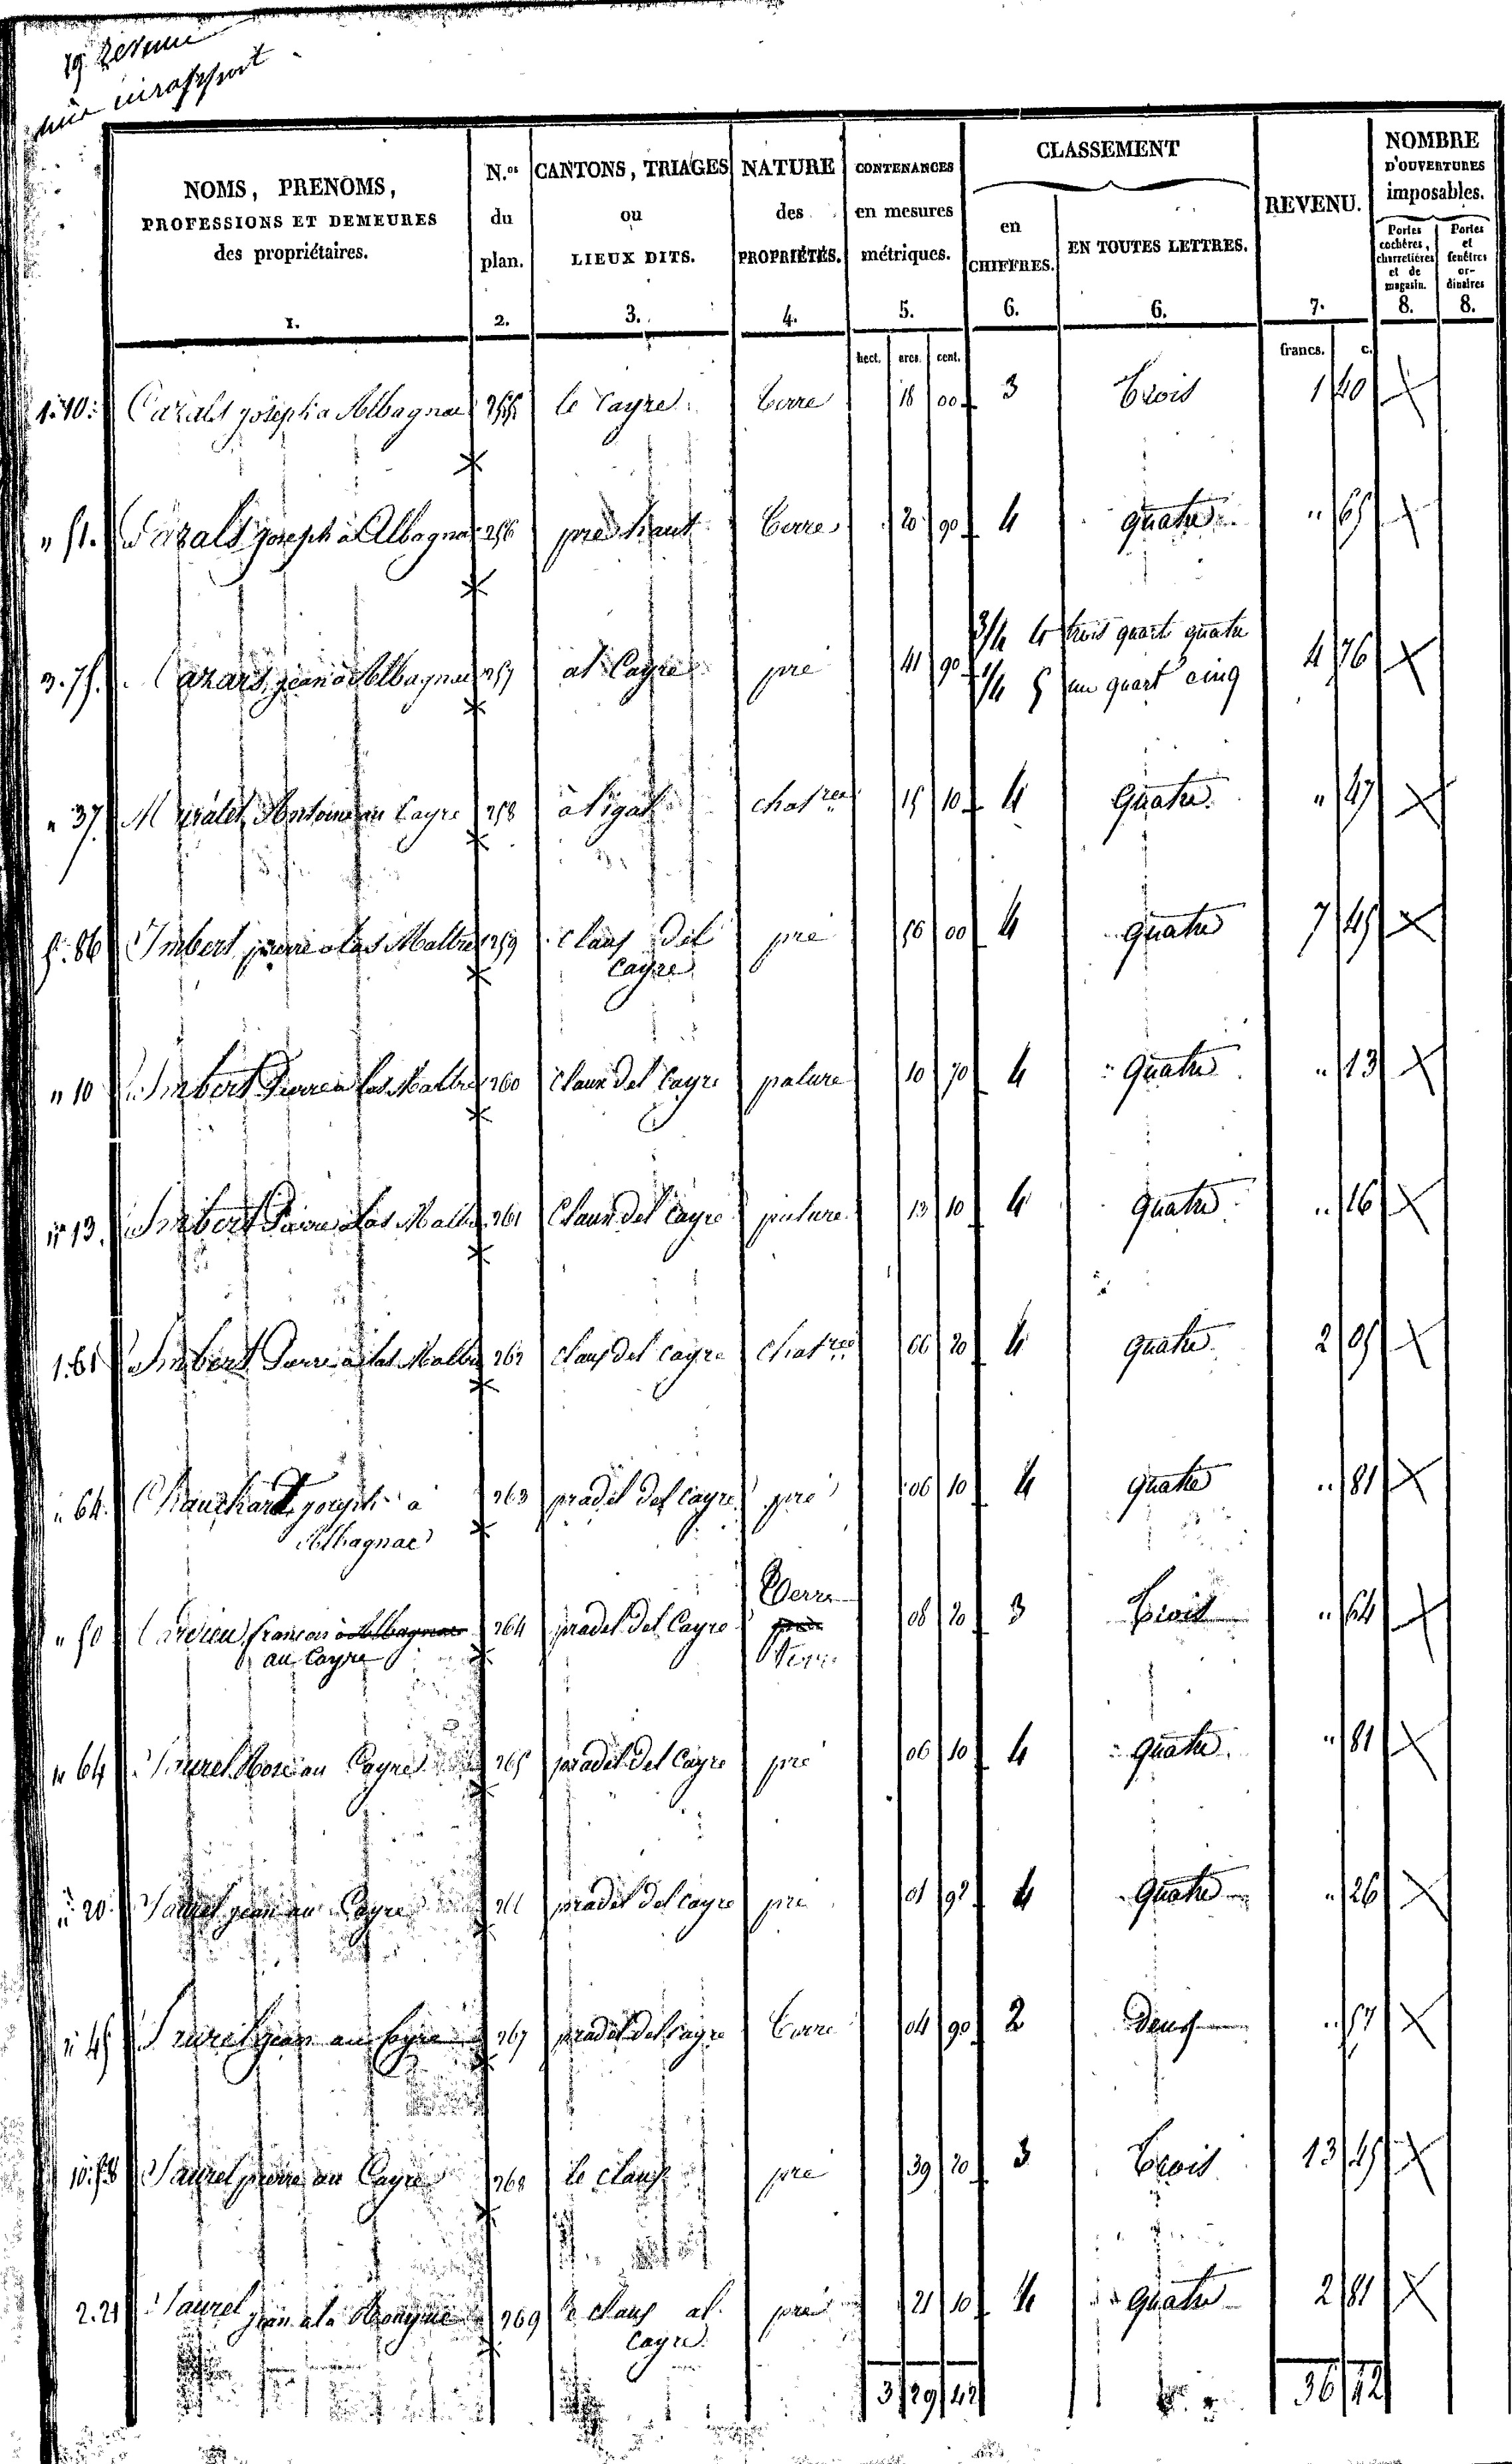 19 Revenu
mis en rapport
NOMS, PRENOMS, PROFESSIONS ET DEMEURES des propriétaires. 1.
N.os du plan. 2.
CANTONS, TRIAGES ou LIEUX DITS. 3.
NATURE des PROPRIÉTÉS. 4.
CONTENANCES en mesures métriques. 5.
CLASSEMENT
en CHIFFRES. 6.
EN TOUTES LETTRES. 6.
REVENU. 7.
NOMBRE D'OUVERTURES imposables.
Portes cochères, charretières et de magasin. 8.
Portes et fenêtres ordinaires 8.
hect. ares. cent. francs. c.
1.10. Cazals joseph a Albagnac 255 le Cayre terre 18 00 3 trois 1 40
" 51. Cazals joseph à Albagnac 256 pres haut terre 20 90 4 quatre " 65
3.75. Cazars jean a Albagnac 257 al Cayre pré 41 90 3/4 4 trois quart quatre 4 76
1/4 5 un quart cinq
" 37 Muratet Antoine au Cayre 258 chat.res 15 10 4 Quatre " 47
5.86 Imbert pierre a las Maltre 259 claux del pré 56 00 4 quatre 7 45
Cayre
" 10 Imbert Pierre a las Maltre 260 Claux del Cayre pature 10 70 4 Quatre " 13
" 13. Imbert Pierre a las Maltre 261 Claux del Cayre pature 13 10 4 quatre " 16
1.61 Imbert Pierre a las Maltre 262 claux del cayre chat.res 66 20 4 quatre 2 05
" 64. joseph a 263 pradel del Cayre pré 06 10 4 quatre " 81
Albagnac
Terre
" 50 francois à Albagnac 264 pradel del Cayre pré 08 20 3 trois " 64
au Cayre Terre
" 64 Saurel au Cayre 265 pradel del Cayre pré 06 10 4 quatre " 81
" 20. Saurel jean au Cayre 266 pradel del cayre pré 01 92 4 Quatre " 26
" 45 Saurel jean au Cayre 267 pradel del cayre terre 04 90 2 deux " 57
10.58 Saurel pierre au Cayre 268 le claux pré 39 20 3 trois 13 45
2.21 Saurel jean a la 269 le claux al pré 21 10 4 Quatre 2 81
Cayre
3 29 42 36 42